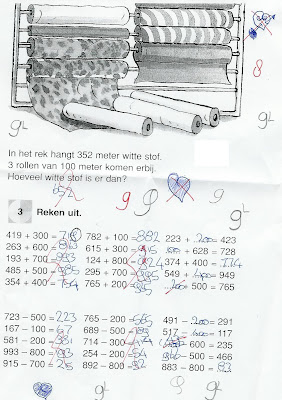 8
gL
gL
In het rek hangt 352 meter witte stof.
3 rollen van 100 meter komen erbij.
Hoeveel witte stof is er dan?
652
g
gL
3 Reken uit.
419 + 300 = 782 + 100 = 882 223 + 200 = 423
263 + 600 = 863 615 + 300 = 628 = 728
193 + 700 = 124 + 800 = 924 374 + 400 = 774
485 + 500 = 985 295 + 700 = 995 549 + 400 = 949
354 + 400 = 765 + 200 = 500 = 765
723 – 500 = 223 765 – 200 = 565 491 – 200 = 291
167 – 100 = 67 689 – 500 = 517 – = 117
581 – 200 = 381 714 – 300 = – 600 = 235
993 – 800 = 254 – 200 = 54 – 500 = 466
915 – 700 = 892 – 800 = 92 883 – 800 = 83
gL
g
gL